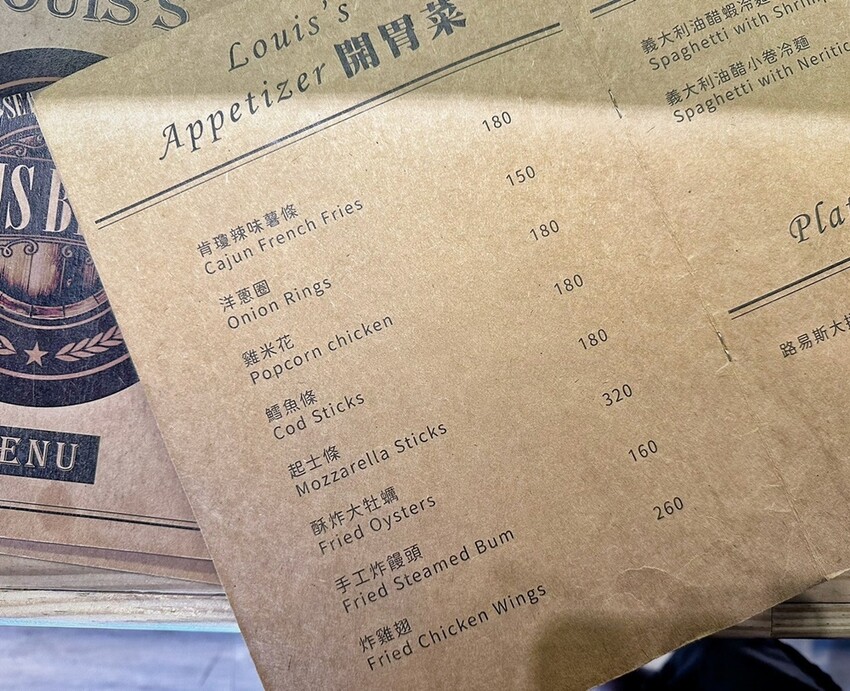 LOUIS'S
ENU
Louis's
Appetizer 開胃菜
肯瓊辣味薯條 180
Cajun French Fries
洋蔥圈 150
Onion Rings
雞米花 180
Popcorn chicken
鱈魚條 180
Cod Sticks
起士條 180
Mozzarella Sticks
酥炸大牡蠣 320
Fried Oysters
手工炸饅頭 160
Fried Steamed Bum
炸雞翅 260
Fried Chicken Wings
義大利油醋蝦冷麵
Spaghetti with Shrimp
義大利油醋小卷冷麵
Spaghetti with Neritic
Plat
路易斯大